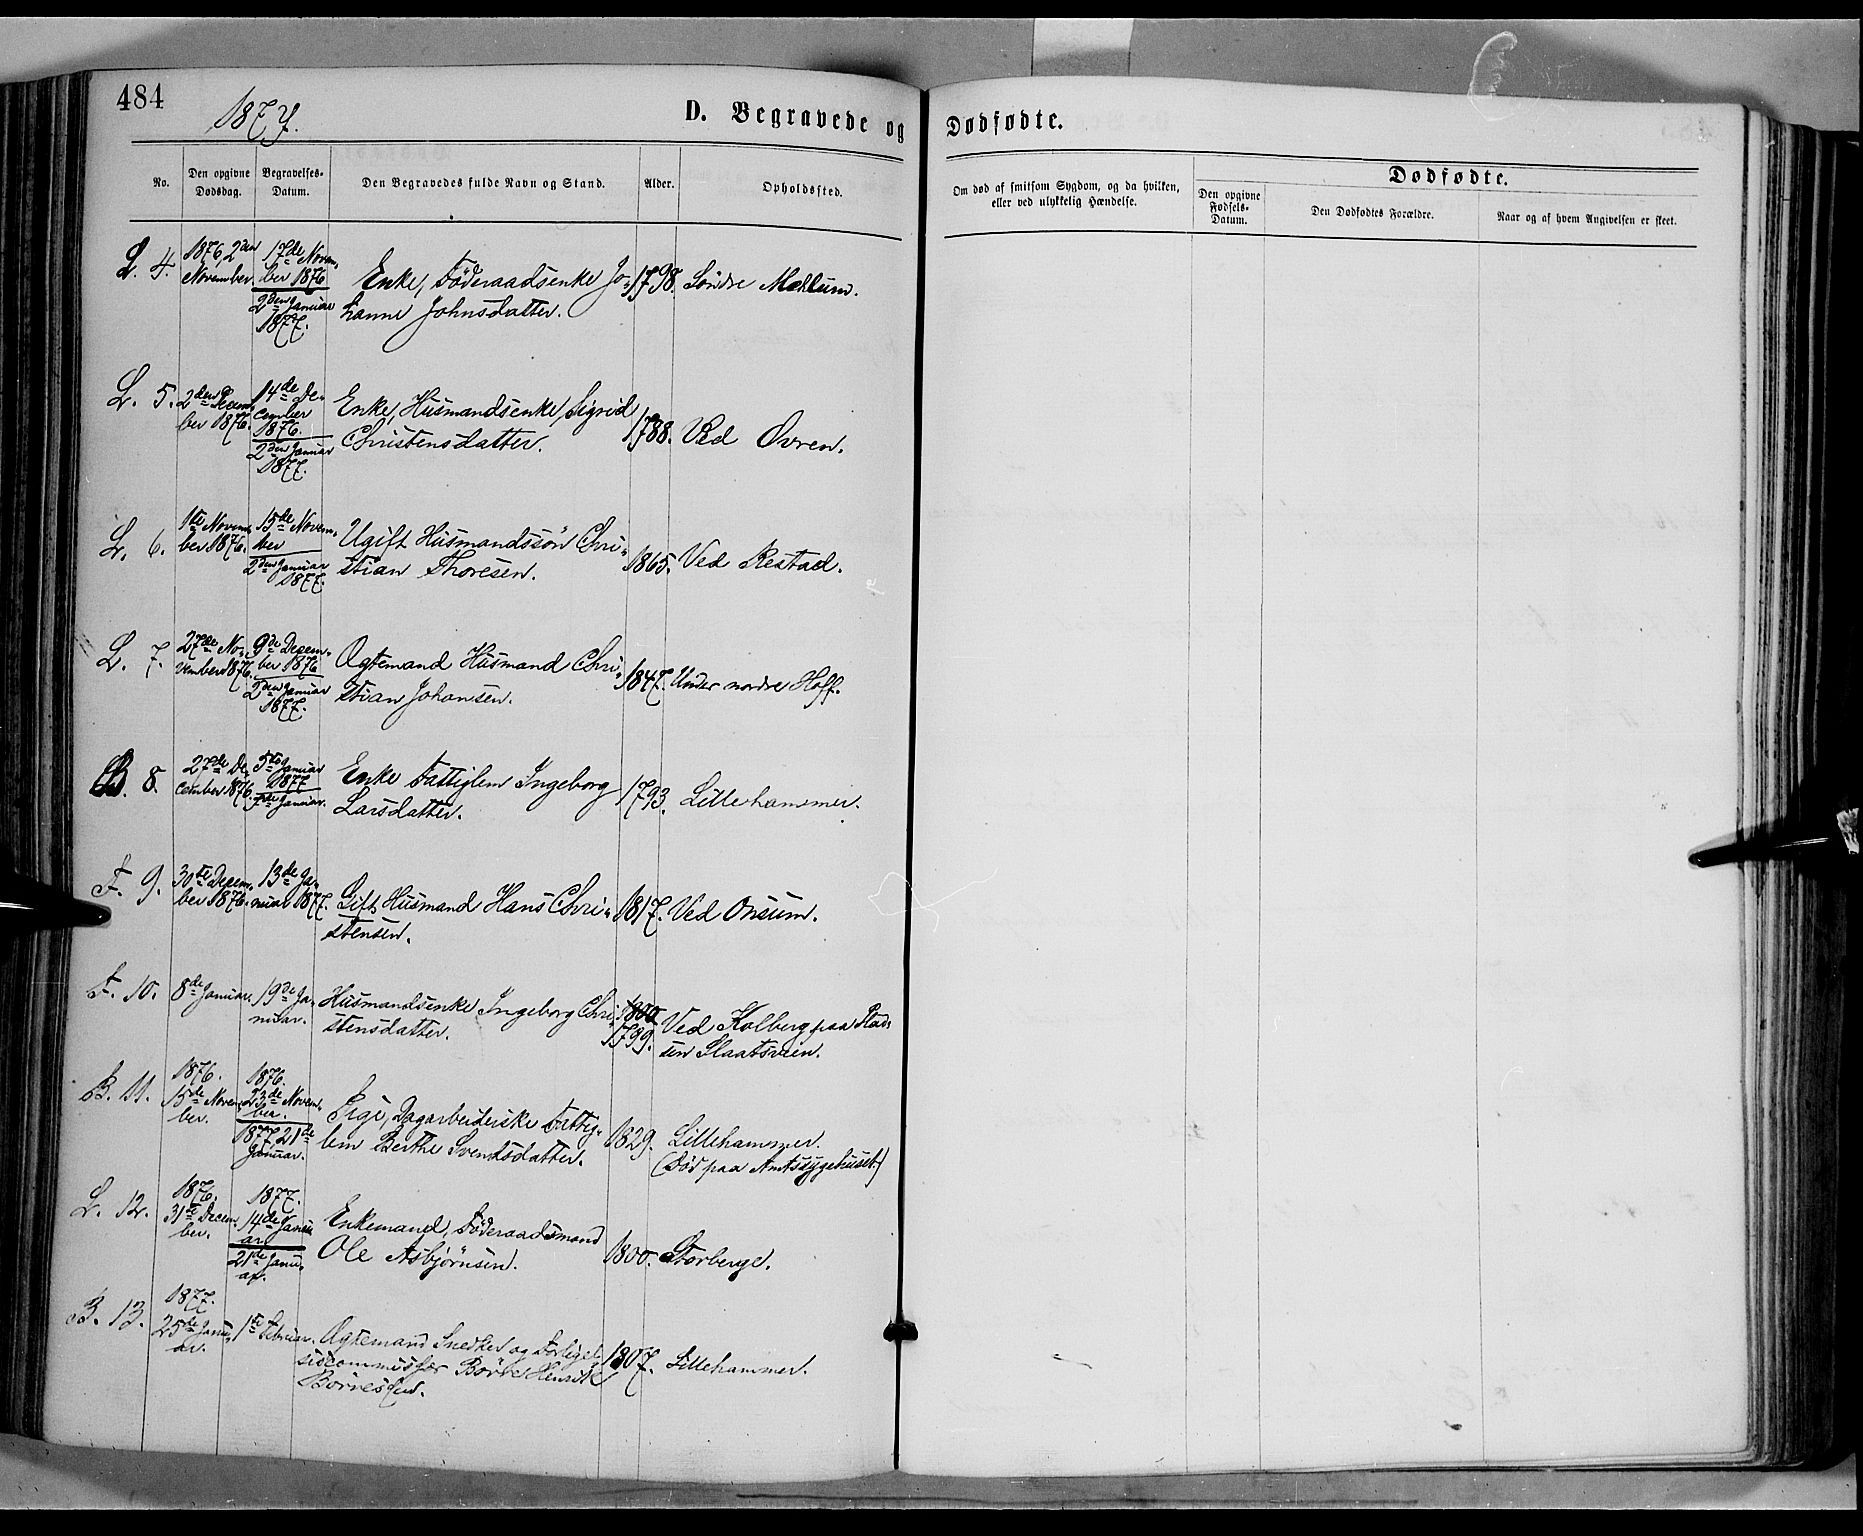 484
1877.
D. Begravede og Dødfødte.
No.
Den opgivne Dødsdag.
Begravelses-Datum.
Den Begravedes fulde Navn og Stand.
Alder.
Opholdssted.
Om død af smitsom Sygdom, og da hvilken,
eller ved ulykkelig Hændelse.
Dødfødte.
Den opgivne Fødsels-Datum.
Den Dødfødtes Forældre.
Naar og af hvem Angivelsen er skeet.
L. 4.
1876, 2den
November.
17de Novem-
ber 1876
2den Januar
1877.
Enke, Føderaadsenke Jo-
hanne Johnsdatter.
1798.
Søndre Mæhlum.
L. 5.
2den Decem-
ber 1876.
14de De-
cember
1876.
2den Januar
1877.
Enke, Husmandsenke, Sigrid
Christensdatter.
1788.
Ved Øvren.
L. 6.
1te Novem-
ber 1876.
15de Novem-
ber
2den Januar
1877.
Ugift Husmandssøn Chri-
stian Thoresen.
1865.
Ved Restad.
L. 7.
27de No-
vember 1876.
9de Decem-
ber 1876
2den Januar
1877.
Ægtemand Husmand Chri-
stian Johansen.
1847.
Under nordre Hoff.
B. 8.
27de De-
cember 1876.
5te Januar
1877
7de Januar.
Enke Fattiglem Ingeborg
Larsdatter.
1793.
Lillehammer.
F. 9.
30te Decem-
ber 1876.
13de Ja-
nuar 1877.
Gift Husmand Hans Chri-
stensen.
1817.
Ved Onsum.
F. 10.
8de Januar.
19de Ja-
nuar.
Husmandsenke Ingeborg Chri-
stensdatter.
1800
1799.
Ved Kolberg paa
Slaatsveen.
B. 11.
1876.
15de Novem-
ber.
1876.
23de Novem-
ber.
1877 21de
Januar.
Pige, Dagarbeiderske Fattig-
lem Berthe Svendsdatter.
1829.
Lillehammer.
(Død paa Amtssygehuset)
L. 12.
1876.
31te Decem-
ber.
1877.
14de Janu-
ar
21de Janu-
ar.
Enkemand, Føderaadsmand
Ole Asbjørnsen.
1800.
Storberge.
B. 13.
1877.
25de Janu-
ar.
1te Februar.
Ægtemand Snedker og Forligel-
sescommissær Børre Henrik
Børresen.
1807.
Lillehammer.